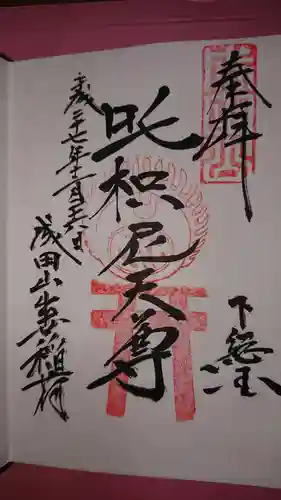 奉拝
下総国
吒枳尼天尊
平成二十七年十一月十六日
成田山出世稲荷